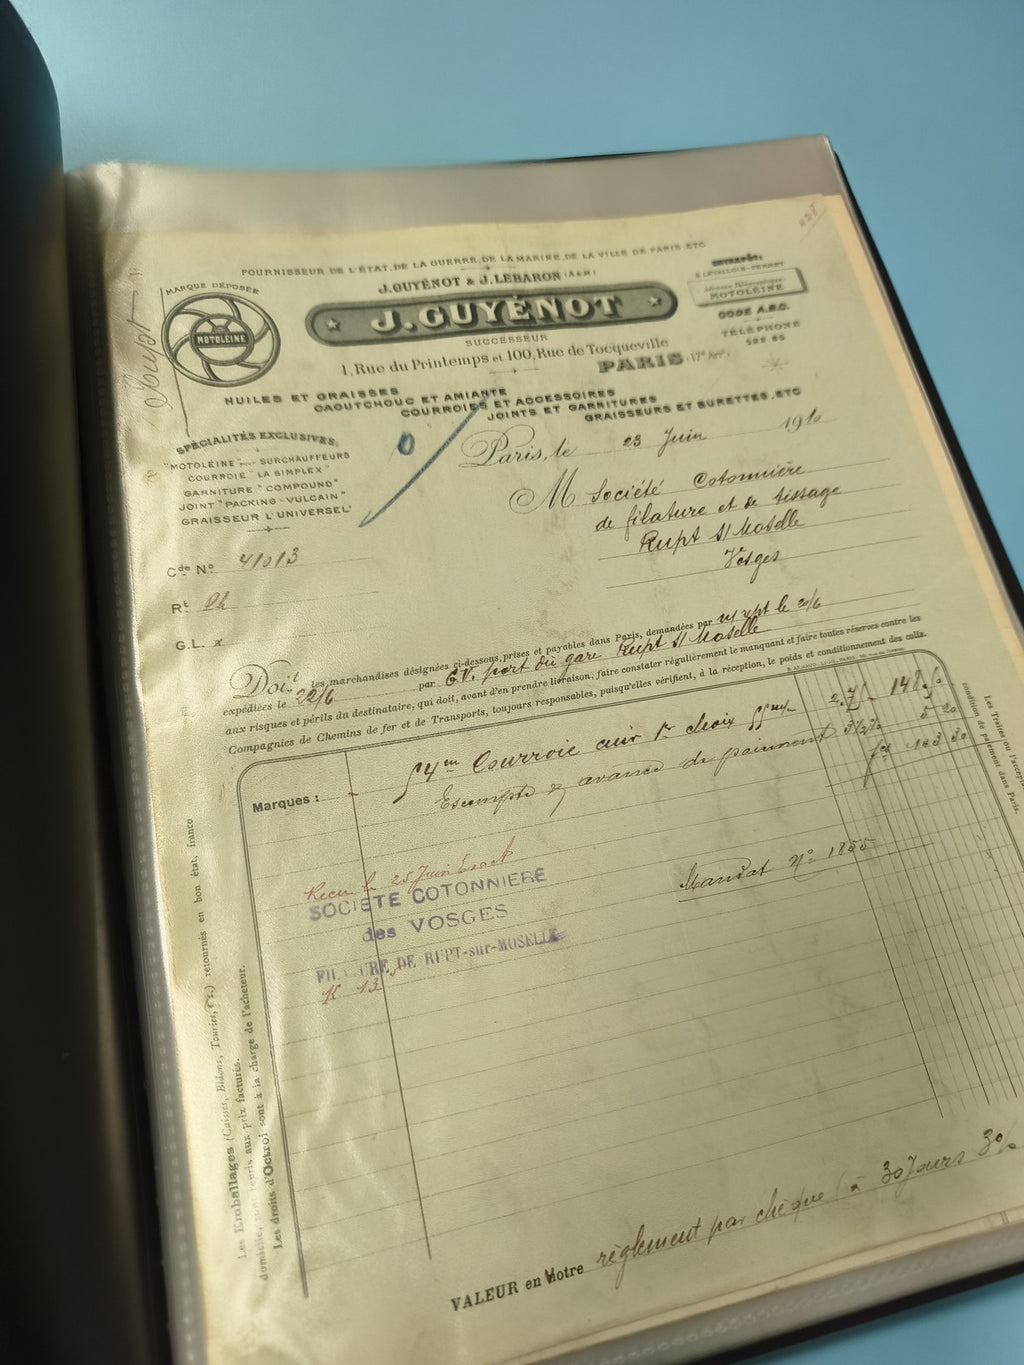 FOURNISSEUR DE L'ÉTAT, DE LA GUERRE, DE LA MARINE, DE LA VILLE DE PARIS, ETC
J. GUYÉNOT & J. LEBARON (A & M)
J. GUYÉNOT
SUCCESSEUR
1, Rue du Printemps et 100, Rue de Tocqueville
PARIS (17e Arrt)
MARQUE DÉPOSÉE
MOTOLÉINE
ENTREPÔT:
À LEVALLOIS-PERRET
Adresse Télégraphique:
MOTOLÉINE
CODE A.B.C.
TÉLÉPHONE
522.85
Rupt
HUILES ET GRAISSES
CAOUTCHOUC ET AMIANTE
COURROIES ET ACCESSOIRES
JOINTS ET GARNITURES
GRAISSEURS ET BURETTES, ETC
SPÉCIALITÉS EXCLUSIVES:
"MOTOLÉINE" pour SURCHAUFFEURS
COURROIE "LA SIMPLEX"
GARNITURE "COMPOUND"
JOINT "PACKING-VULCAIN"
GRAISSEUR L'UNIVERSEL"
Paris, le 23 Juin 1910
M Société Cotonnière
de filature et de tissage
Rupt s/ Moselle
Vosges
Cde No 41013
Rt
G.L. x
Doit les marchandises désignées ci-dessous, prises et payables dans Paris, demandées par le 20/6
expédiées le 22/6 par G.V. port du gare Rupt s/ Moselle
aux risques et périls du destinataire, qui doit, avant d'en prendre livraison, faire constater régulièrement le manquant et faire toutes réserves contre les
Compagnies de Chemins de fer et de Transports, toujours responsables, puisqu'elles vérifient, à la réception, le poids et conditionnement des colis.
Marques :
54m Courroie cuir 1r choix 55m/m 2.75 148.50
Escompte & avance de paiement 3½% 5 20
fcs 143 30
Mandat No 1855
Recu le 25 Juin Exact
SOCIÉTÉ COTONNIERE
des VOSGES
FILATURE DE RUPT-sur-MOSELLE
K 13
Les Emballages (Caisses, Bidons, Touries, etc.) retournés en bon état, franco
domicile, sont repris aux prix facturés.
Les droits d'Octroi sont à la charge de l'acheteur.
Les Traites ou l'accept
condition de paiement dans Paris.
VALEUR en Votre règlement par chèque à 30 Jours 3%